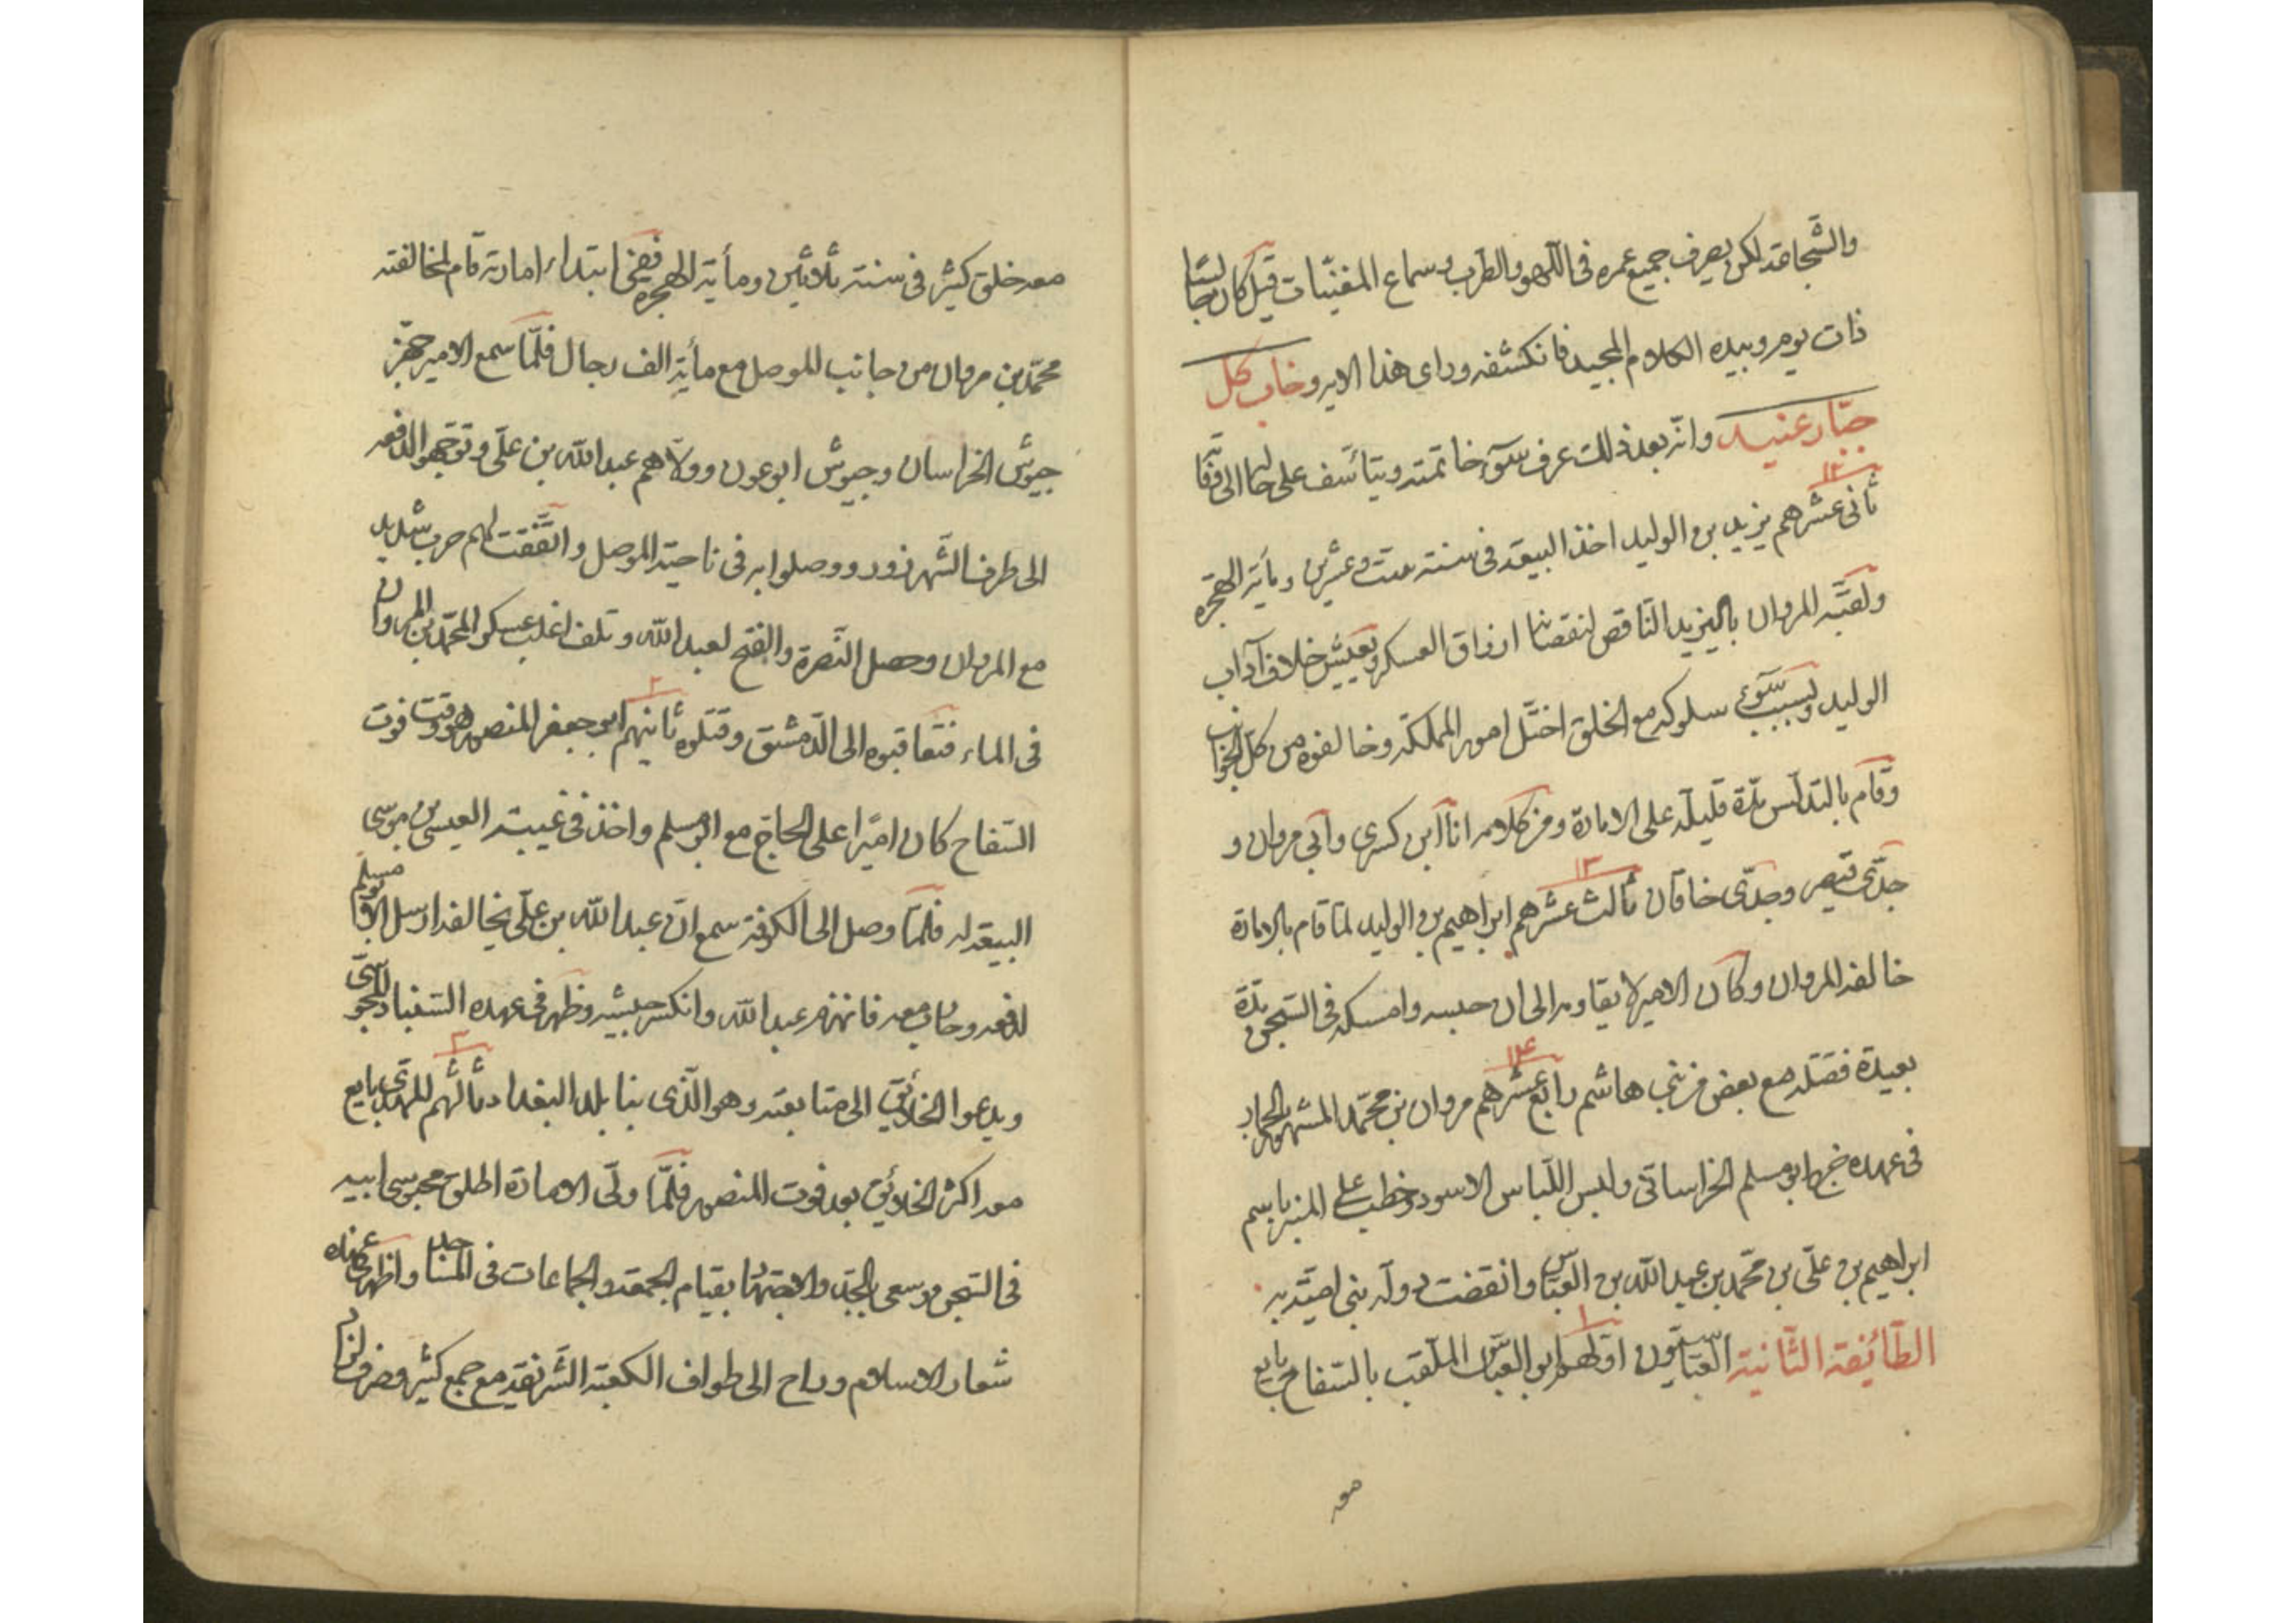 والشّجاعة لكن يصرف جميع عمره فى اللّهو والطّرب وسماع المغنّيات قيل كان جالسًا
ذات يوم وبيده الكلام المجيد فانكشفه وراى هذا الاير وخاب كل
جبّار عنيد وانّه بعد ذلك عرف سّوء خاتمته ويتأسّف على حالها الى وفاته
١٢
ثانى عشرهم يزيد بن الوليد اخذ البيعة فى سنة ستّ وعشرين ومأية الهجره
ولقّبه المروان باليزيد النّاقص لنقصانها ارزاق العسكر وتعيّش خلاف آداب
الوليد وبسبب سّوء سلوكه مع الخلق اختّل امور المملكة وخالفوه من كل الجوانب
وقام بالتدلّس مدّة قليلة على الامارة ومن كلامه انا ابن كسرى وابى مروان و
١٣
جدّى قيصر وجدّى خاقان ثالث عشرهم ابراهيم بن الوليد لمّا قام بالامارة
خالفه المروان وكان الامير لا يقاومه الى ان حبسه وامسكه فى السّجن مدّة
١٤
بعيدة فقتله مع بعض من بنى هاشم رابع عشرهم مروان بن محمّد المشهور بالحمار
فى عهده خرج ابو مسلم الخراسانى ولبس اللّباس الاسود وخطب على المنبر باسم
ابراهيم بن علّى بن محمّد بن عبد اللّه بن العبّاس وانقضت دولة بنى اميّة به
١
الطّائفة الثّانية العبّاسيّون اوّلهم ابو العبّاس الملّقب بالسّفاح بايع
معه
معه خلق كثير فى سنة ثلاثين ومأية الهجره ففى ابتداء امارته قام لمخالفته
محمّد بن مروان من جانب الموصل مع مأية الف رجال فلمّا سمع الامير جهّز
جيوش الخراسان وجيوش ابو عون وولّاهم عبد اللّه بن علّى وتوجّهوا لدفعه
الى طرف الشّهرزور ووصلوا به فى ناحية الموصل واتّفقت لهم حرب شديد
مع المروان وحصل النّصرة والفتح لعبد اللّه وتلف اغلب عسكر المحمّد بن المروان
٢
فى الماء فتعاقبوه الى الدّمشق وقتلوه ثانيهم ابو جعفر المنصور هو وقت فوت
السّفاح كان اميرًا على الحاج مع ابو مسلم واخذ فى غيبته العيسى بن موسى
البيعة له فلمّا وصل الى الكوفة سمع انّ عبد اللّه بن علّى يخالفه ارسل ابو مسلم
لدفعه وحارب معه فانهزم عبد اللّه وانكسر جيشه وظهر فى عهده السّنباد المجوسّى
٣
ويدعوا الخلائق الى متابعته وهو الّذى بنا بلد البغداد ثالثهم المهدّى بايع
معه اكثر الخلائق بعد فوت المنصور فلمّا ولّى الامارة اطلق محبوسى ابيه
فى السّجن وسعى بالجدّ والاجتهاد بقيام الجمعة والجماعات فى المساجد واظهر فى عهده
شعار الاسلام وراح الى طواف الكعبة الشّريفة مع جمع كثير وصرف لوازم